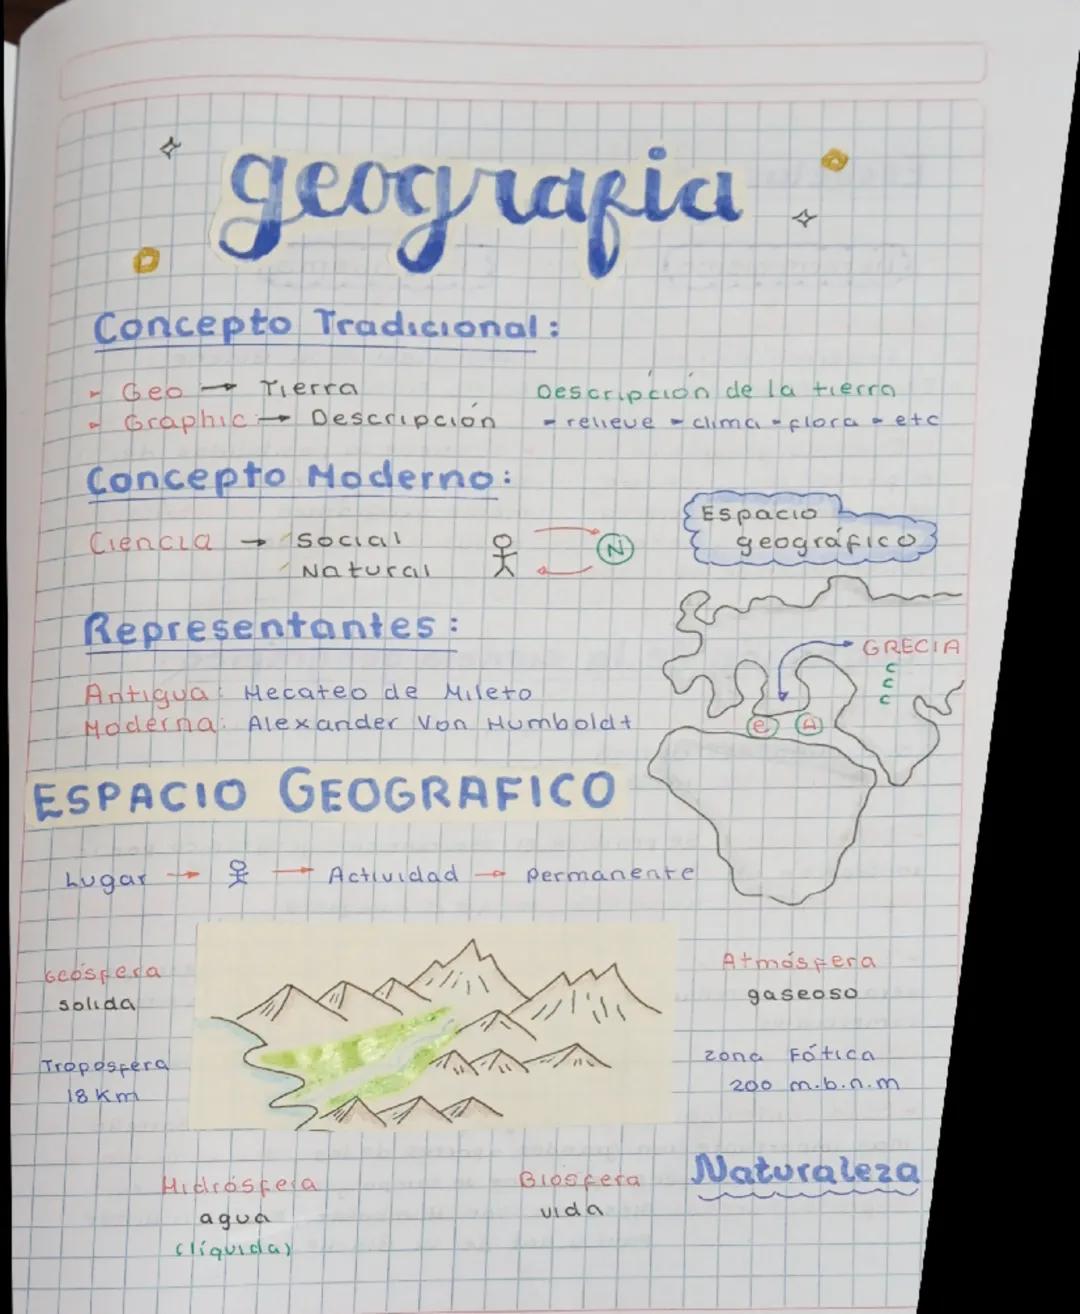 geografia
Concepto Tradicional:
- Geo → Tierra
- Graphic → Descripción
Descripción de la tierra
- relieve - clima - flora - etc
Concepto Moderno:
Ciencia → Social
Natural
N
Espacio
geográfico
Representantes:
Antigua: Hecateo de Mileto
Moderna: Alexander Von Humboldt
GRECIA
c
c
c
e A
ESPACIO GEOGRAFICO
Lugar → → Actividad → Permanente
Geósfera
solida
Atmósfera
gaseoso
Troposfera
18 Km
zona Fótica
200 m.b.n.m
Hidrósfera
agua
(líquida)
Biosfera
vida
Naturaleza